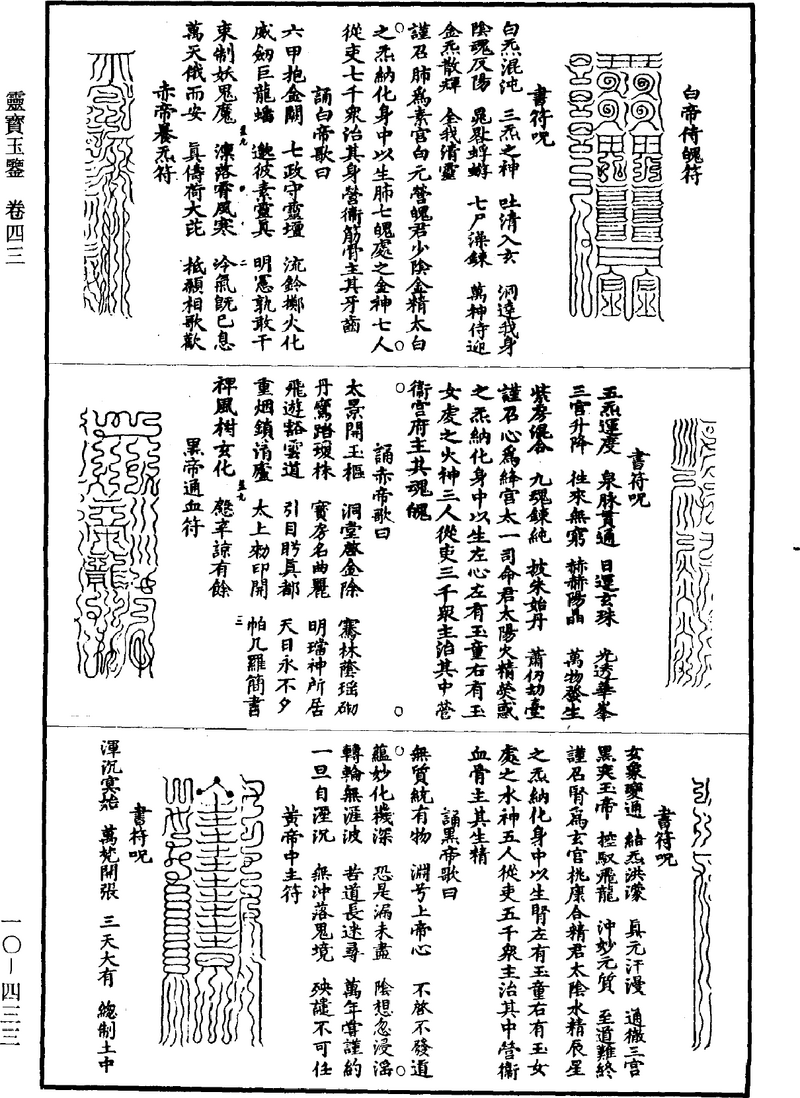 靈寶玉鑒 卷四三
一〇-四三三
白帝侍魄符
書符呪
白炁混沌 三炁之神 吐清入玄 洞達我身
陰魂反陽 晃晃蜉蝣 七尸澡鍊 萬神侍迎
金炁散輝 全我清靈
謹召肺為素宮白元營魄君少陰金精太白
之炁納化身中以生肺七魄處之金神七人
從吏七千眾治其身營衛筋骨主其牙齒
誦白帝歌曰
六甲抱金關 七政守靈壇 流鈴擲火化
威劒巨龍蟠 邀彼素靈真 明憲孰敢干
束制妖鬼魔 凍落霄風寒 冷氣既已息
萬天俄而安 真儔荷大庇 抵願相歌歡
赤帝養炁符
書符呪
五炁運度 泉脉貫通 日運玄珠 光透華峯
三宮升降 往來無窮 赫赫陽晶 萬物發生
紫房 九魂鍊純 披朱始丹 蕭仞劫臺
謹召心為絳宮太一司命君太陽火精熒惑
之炁納化身中以生左心左有玉童右有玉
女處之火神三人從吏三千眾主治其中營
衛宮府主其魂魄
誦赤帝歌曰
太景開玉樞 洞堂啓金除 騫林蔭瑶砌
丹鸞踏瓊株 寶房名曲麗 明璫神所居
飛遊豁雲道 引目眄真都 天日永不夕
重烟鎖清廬 太上勑印開 帕几羅簡書
裨風相玄化 飇辛諒有餘
黑帝通血符
書符呪
玄眾變通 結炁洪濛 真元汗漫 通微三宮
黑爽玉帝 控馭飛龍 沖妙元質 至道難終
謹召腎為玄宮桃康合精君太陰水精辰星
之炁納化身中以生腎左有玉童右有玉女
處之水神五人從吏五千眾主治其中營衛
血骨主其生精
誦黑帝歌曰
無質統有物 淵兮上帝心 不啓不發道
蘊妙化機深 恐是漏未盡 陰想忽浸滛
轉輪無涯波 苦道長迷尋 萬年嘗謹約
一旦自湮沉 無沖落鬼境 殃譴不可任
黃帝中主符
書符呪
渾沉寞始 萬梵開張 三天大有 總制土中